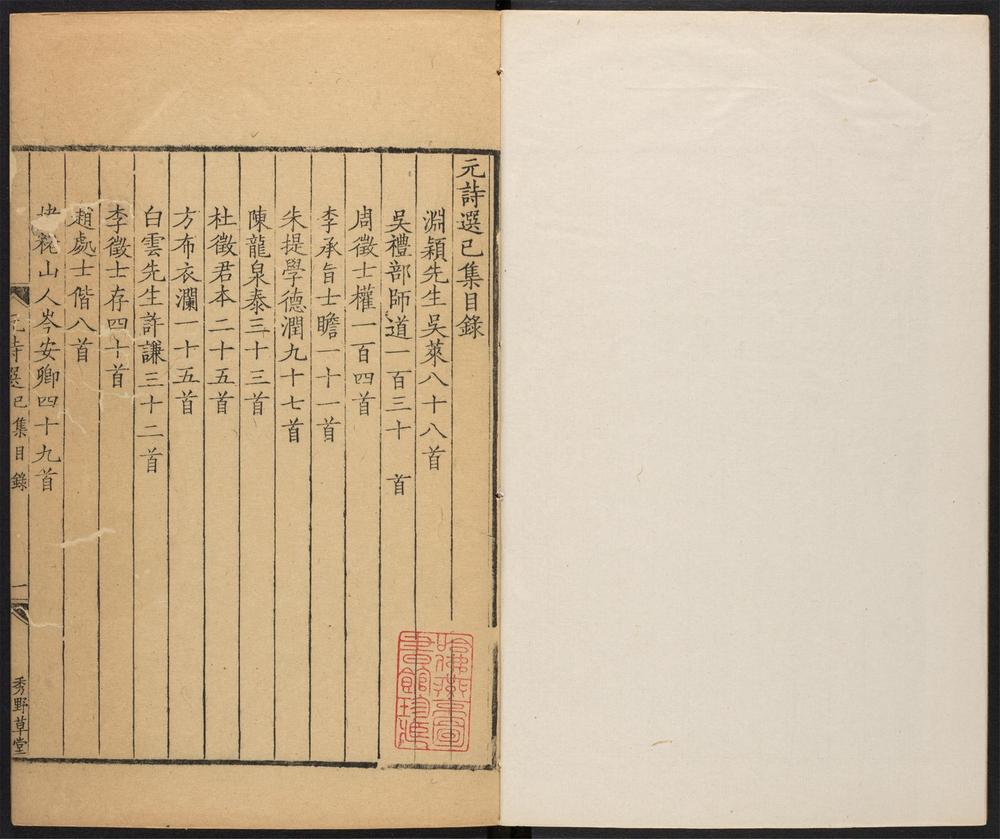 元詩選己集目錄
淵穎先生吳萊八十八首
吳禮部師道一百三十 首
周徵士權一百四首
李承旨士瞻一十一首
朱提學德潤九十七首
陳龍泉泰三十三首
杜徵君本二十五首
方布衣瀾一十五首
白雲先生許謙三十二首
李徵士存四十首
趙處士偕八首
山人岑安卿四十九首
元詩選己集目錄
一
秀野草堂
哈佛燕京圖
書館珍藏